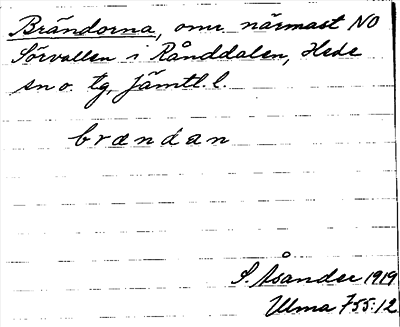 Brändorna, omr närmast NO
Sörvallen i Rånddalen, Hede
sn o. tg, Jämtl. l.
brændan
S. Åsander 1919
Ulma 755:12